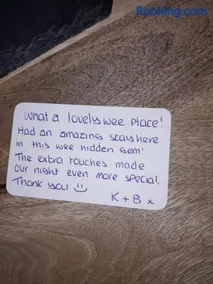 Booking.com
What a lovely wee place!
Had an amazing stay here
in this wee hidden gem!
The extra touches made
our night even more special.
Thank you! :)
K + B x